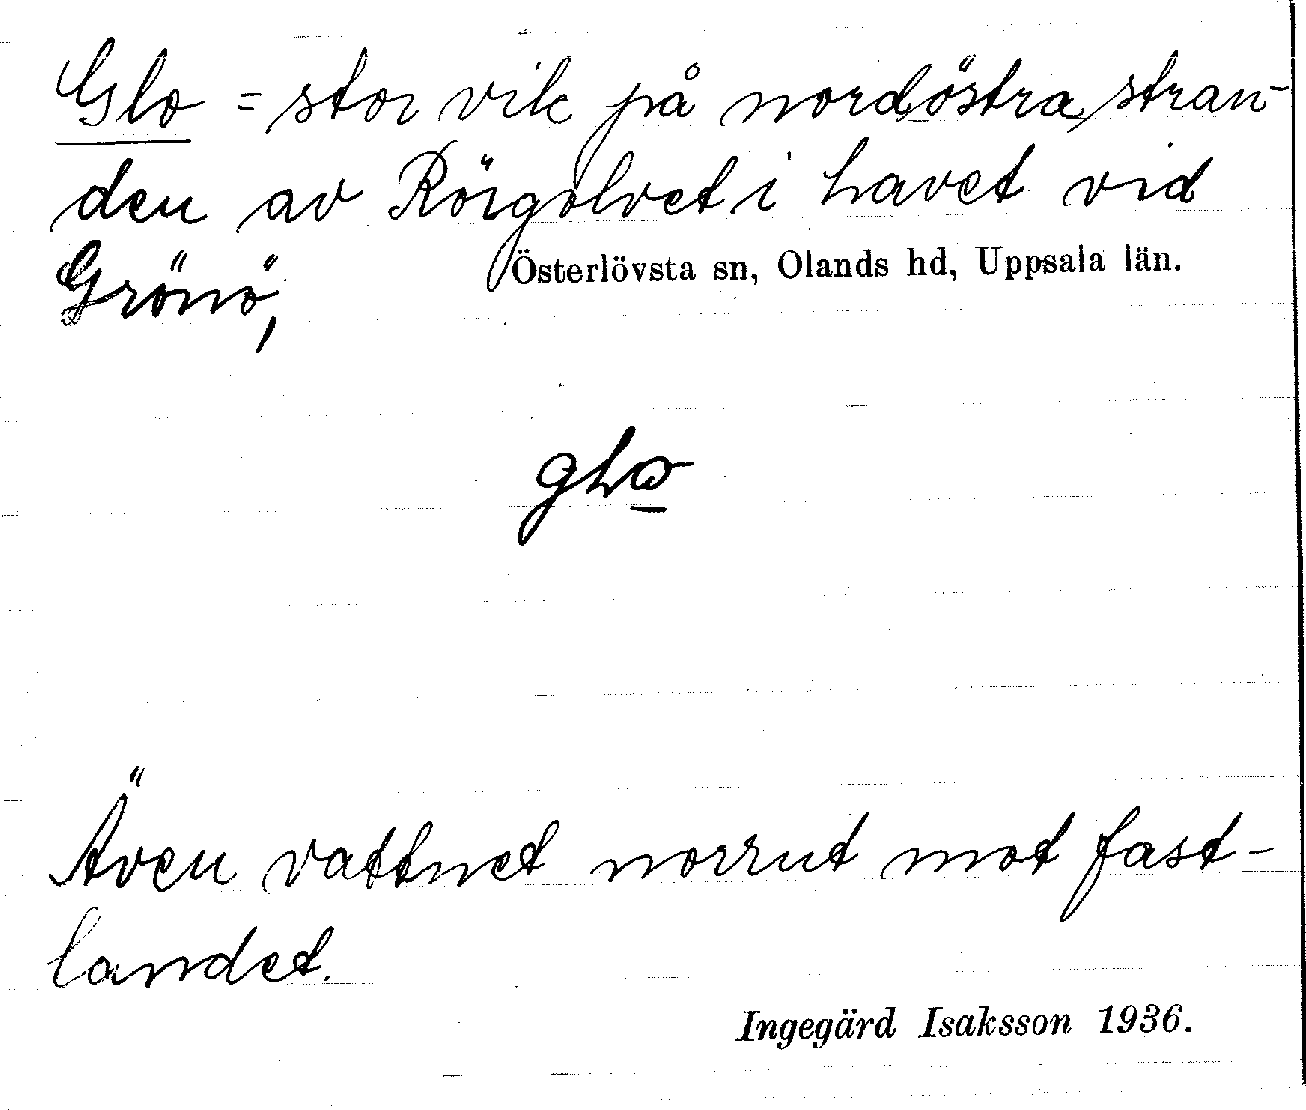 Glo = stor vik på nordöstra stran-
den av Rörgolvet i havet vid
Grönö,
Österlövsta sn, Olands hd, Uppsala län.
Även vattnet norrut mot fast-
landet.
Ingegärd Isaksson 1936.